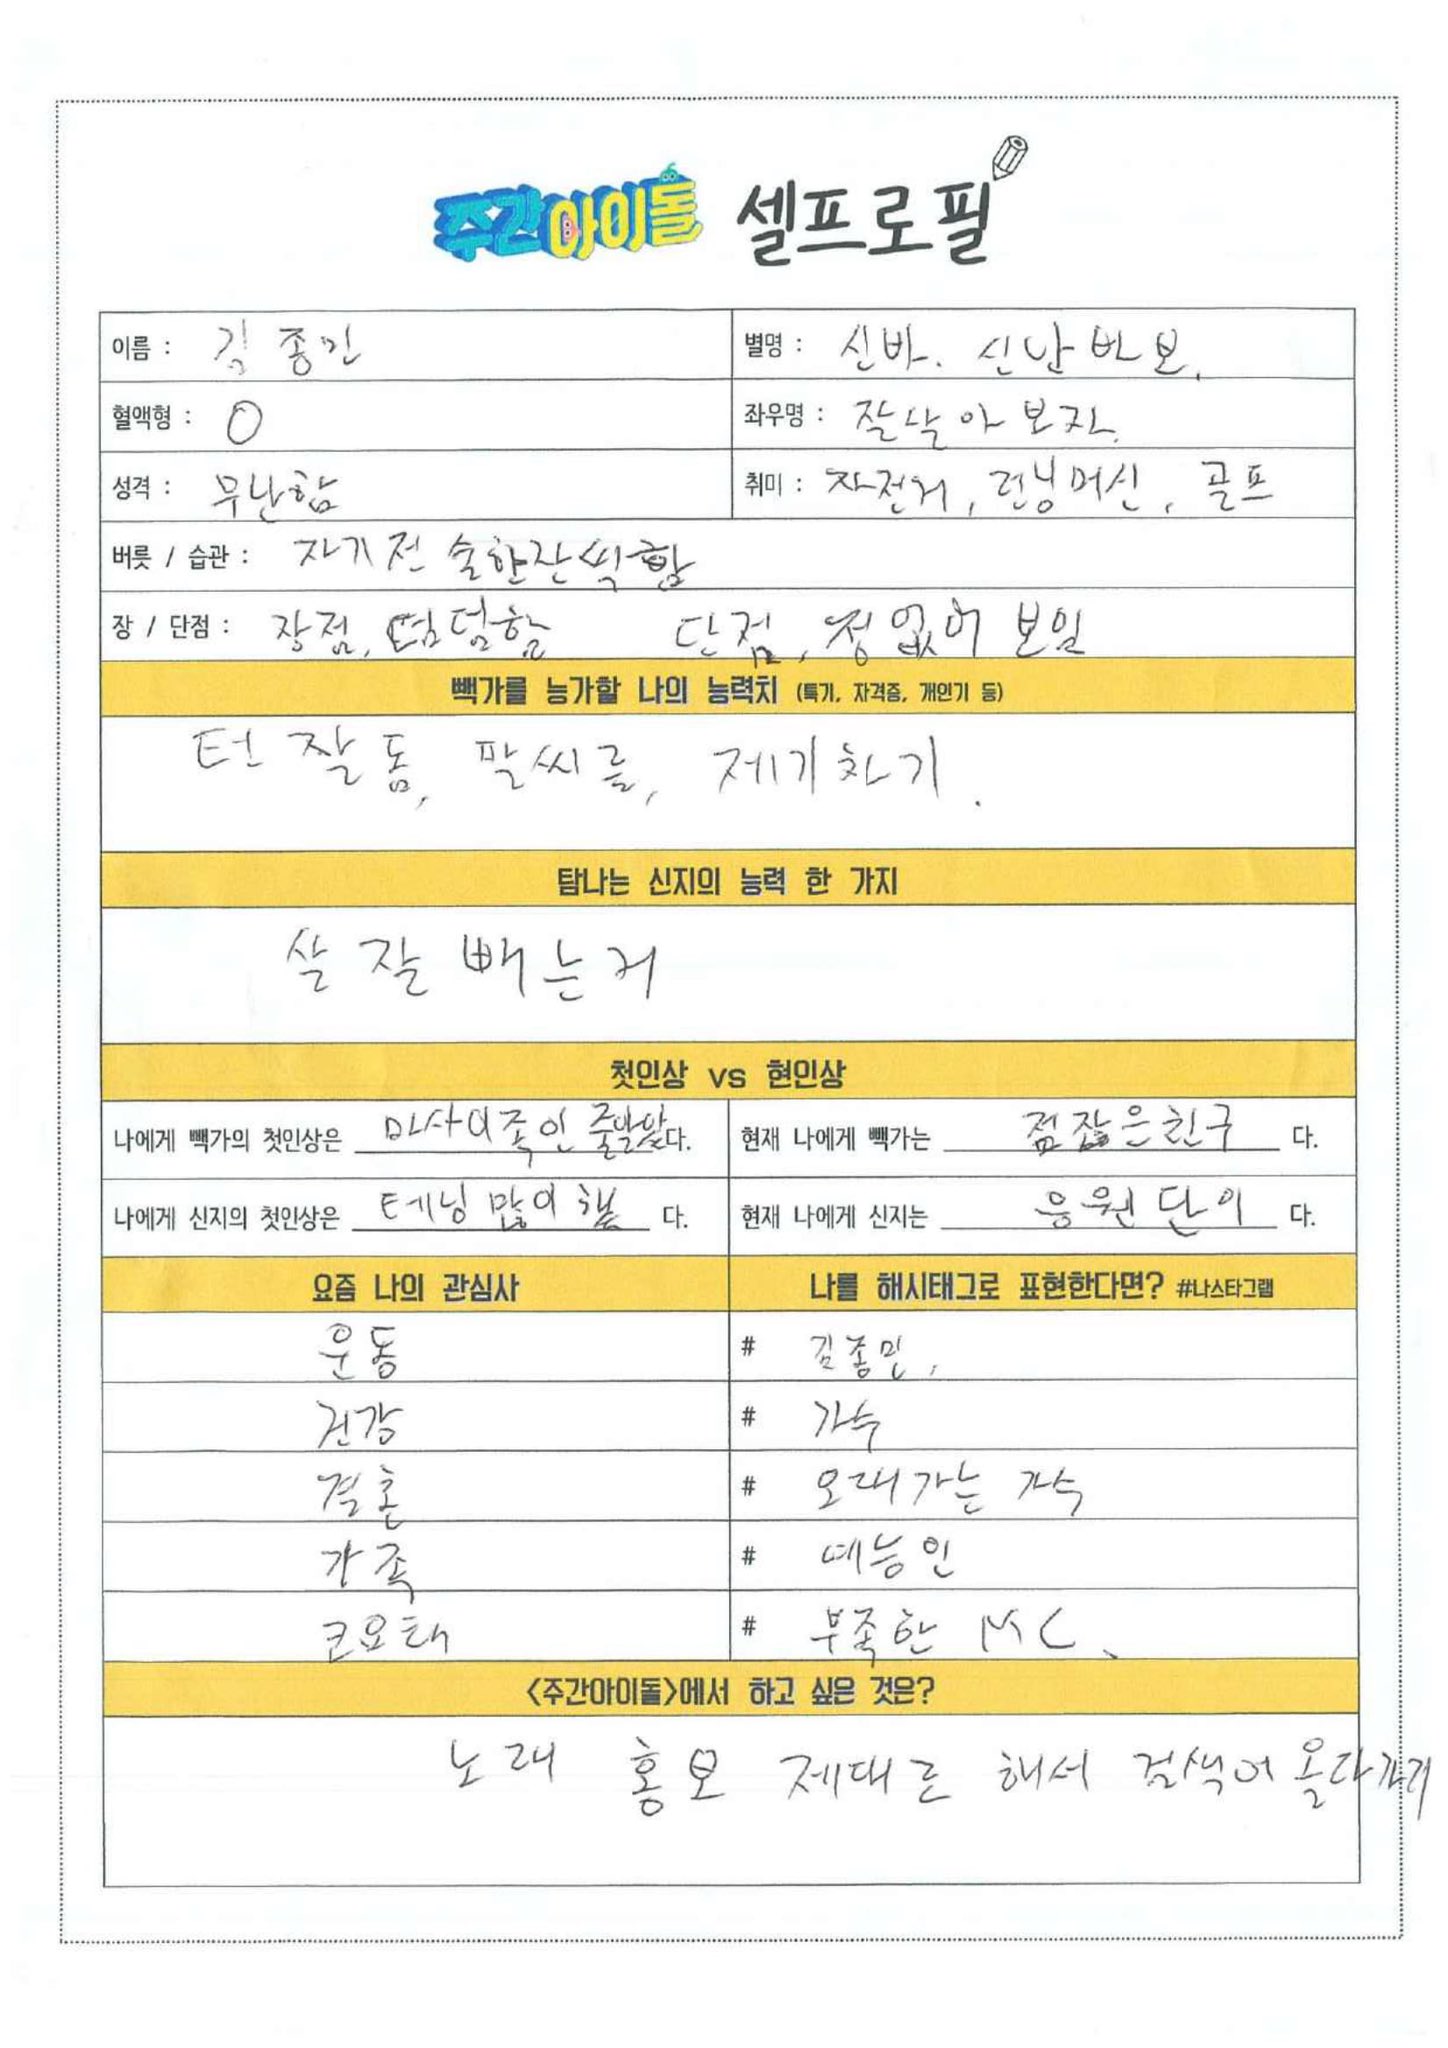 주간아이돌 셀프로필
이름 : 김종민
별명 : 신바. 신난바보.
혈액형 : O
좌우명 : 잘살아보자.
성격 : 무난함
취미 : 자전거, 런닝머신, 골프
버릇 / 습관 : 자기전 술한잔씩함
장 / 단점 : 장점, 덤덤함 단점, 정없어 보임
빽가를 능가할 나의 능력치 (특기, 자격증, 개인기 등)
턴 잘돔, 팔씨름, 제기차기.
탐나는 신지의 능력 한 가지
살 잘 빼는거
첫인상 vs 현인상
나에게 빽가의 첫인상은 마사이족인줄알았다.
현재 나에게 빽가는 점잖은친구 다.
나에게 신지의 첫인상은 테닝 많이 했 다.
현재 나에게 신지는 응원단이 다.
요즘 나의 관심사
나를 해시태그로 표현한다면? #나스타그램
운동
# 김종민,
건강
# 가수
결혼
# 오래가는 가수
가족
# 예능인
코요태
# 부족한 MC.
<주간아이돌>에서 하고 싶은 것은?
노래 홍보 제대로 해서 검색어 올라가기